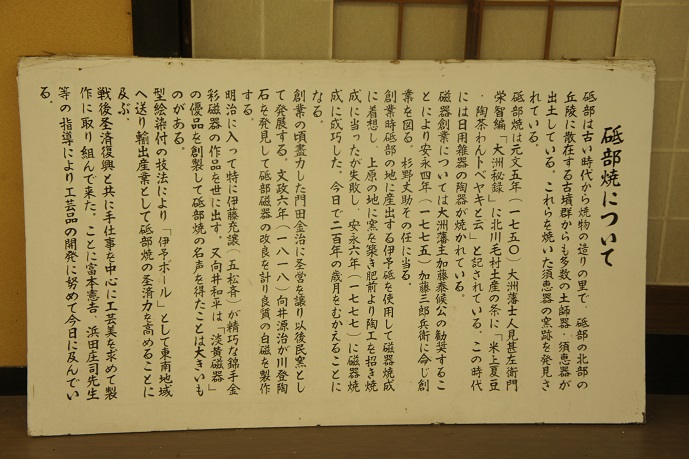 砥部焼について
砥部は古い時代から焼物の造りの里で、砥部の北部の
丘陵に散在する古墳群からも多数の土師器・須恵器が
出土している。これらを焼いた須恵器の窯跡を発見さ
れている。
砥部焼は元文五年(一七五〇)大洲藩士人見甚左衛門
栄智編「大洲秘録」に北川毛村土産の条に「米上夏豆
・陶茶わんトベヤキと云」と記されている。この時代
には日用雑器の陶器が焼かれている。
磁器創業については大洲藩主加藤泰候公の勧奨するこ
とにより安永四年(一七七五)加藤三郎兵衛に命じ創
業を図る。杉野丈助その任に当る。
創業時砥部の地に産出する伊予砥を使用して磁器焼成
に着想し、上原の地に窯を築き肥前より陶工を招き焼
成に当ったが失敗し、安永六年(一七七七)に磁器焼
成に成功した。今日で二百年の歳月をむかえることに
なる。
創業の頃盡力した門田金治に圣営を譲り以後民窯とし
て発展する。文政六年(一八一八)向井源治が川登陶
石を発見して砥部磁器の改良を計り良質の白磁を製作
する。
明治に入って特に伊藤允譲(五松斉)が精巧な錦手金
彩磁器の作品を世に出す。又向井和平は「淡黄磁器」
の優品を創製して砥部焼の名声を得たことは大きいも
のがある。
型絵染付の技法により「伊予ボール」として東南地域
へ送り輸出産業として砥部焼の圣済力を高めることに
及ぶ。
戦後圣済復興と共に手仕事を中心に工芸美を求めて製
作に取り組んで来た。ことに富本憲吉、浜田庄司先生
等の指導により工芸品の開発に努めて今日に及んでい
る。